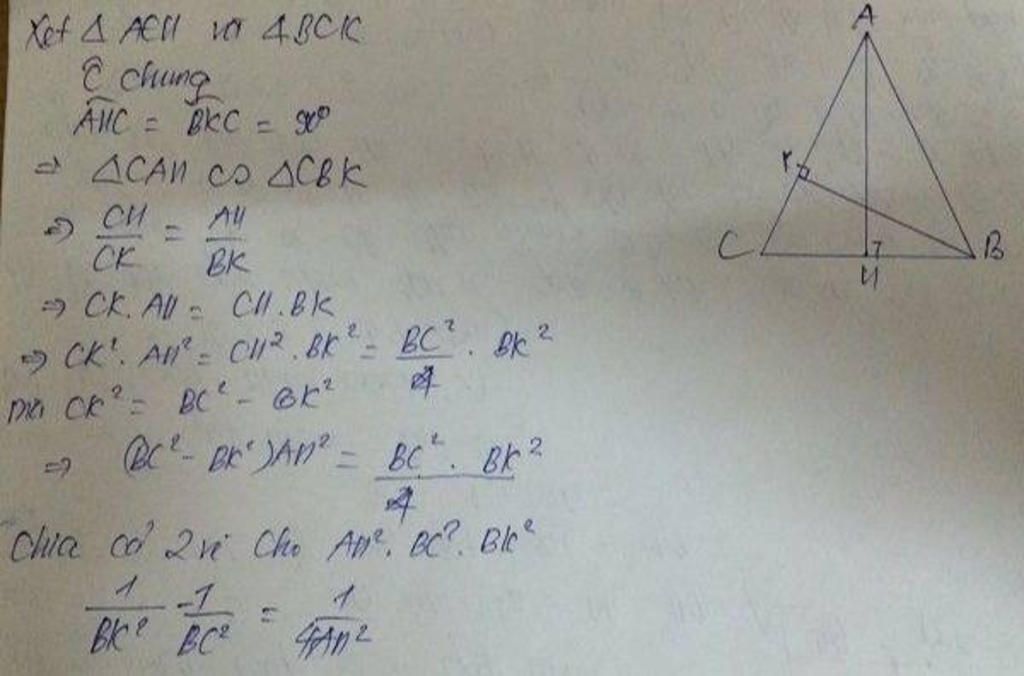 Xét Δ ACH và ΔBCK
Ĉ chung
AHC = BKC = 90°
⇒ ΔCAH ∽ ΔCBK
⇒ CH/CK = AH/BK
⇒ CK.AH = CH.BK
⇒ CK². AH² = CH².BK² = BC²/4 . BK²
mà CK² = BC² - BK²
⇒ (BC² - BK²)AH² = BC². BK²/4
Chia cả 2 vế cho AH². BC². BK²
1/BK² - 1/BC² = 1/4AH²
A
K
C
H
B